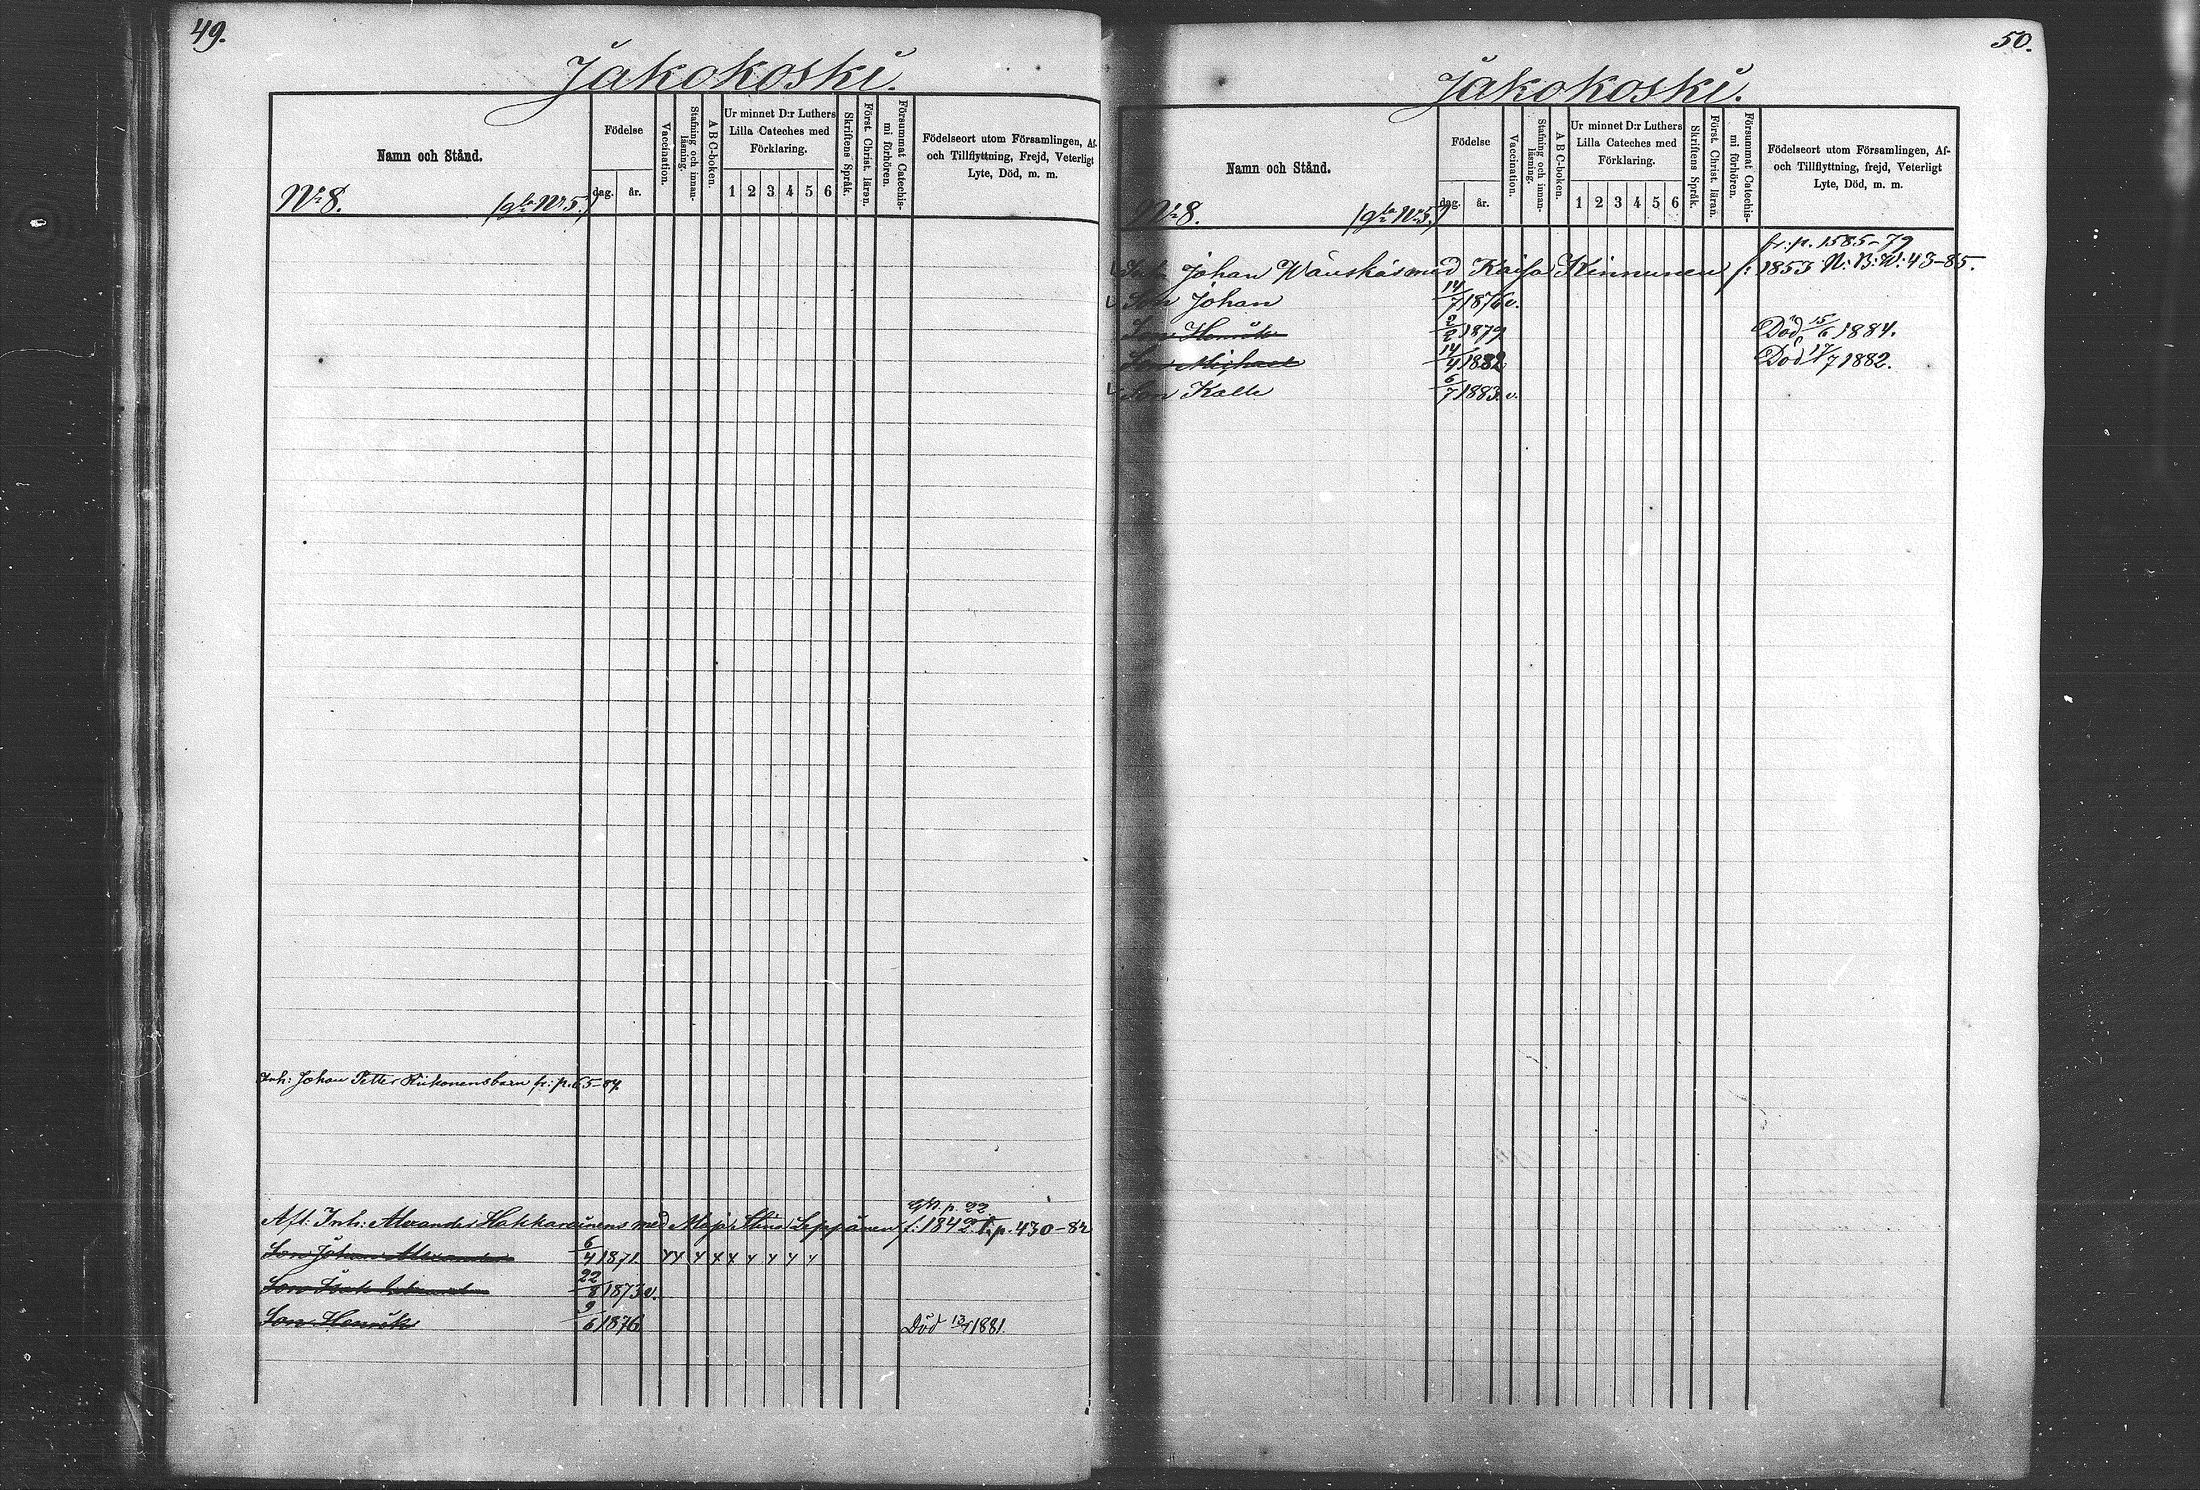 49.
Jakokoski.
Namn och Stånd.
Födelse
dag. år.
Vaccination.
Stafning och innanläsning.
A B C-boken.
Ur minnet D:r Luthers
Lilla Cateches med
Förklaring.
1 2 3 4 5 6
Skriftens Språk.
Först. Christ. läran.
Försummat Catechismi förhören.
Födelseort utom Församlingen, Af-
och Tillflyttning, Frejd, Veterligt
Lyte, Död, m. m.
No 8. (gla No 5.)
Inh: Johan Petter Kukonens barn fr: p. 65-87.
p. 22
Afl: Inh: Alexander Hakkarainens med Maja Stina Seppänen f: 1842 p. 430-82
Son Johan Alexander 6/4 1871
Son Isak 22/8 1873 v.
Son Henrik 9/6 1876 Död 1881.
50.
Jakokoski.
Namn och Stånd.
Födelse
dag. år.
Vaccination.
Stafning och innanläsning.
A B C-boken.
Ur minnet D:r Luthers
Lilla Cateches med
Förklaring.
1 2 3 4 5 6
Skriftens Språk.
Först. Christ. läran.
Försummat Catechismi förhören.
Födelseort utom Församlingen, Af-
och Tillflyttning, frejd, Veterligt
Lyte, Död, m. m.
No 8. (gla No 5.)
fr: p. 1585-79
Inh: Johan Wänskäs med Kaisa Kinnunen f: 1853 N: B: W: 43-85.
Son Johan 14/7 1876 v.
Son Henrik 2/2 1879 Död 15/6 1884.
Son Michael 14/4 1882 Död 17/7 1882.
Son Kalle 6/7 1883 v.